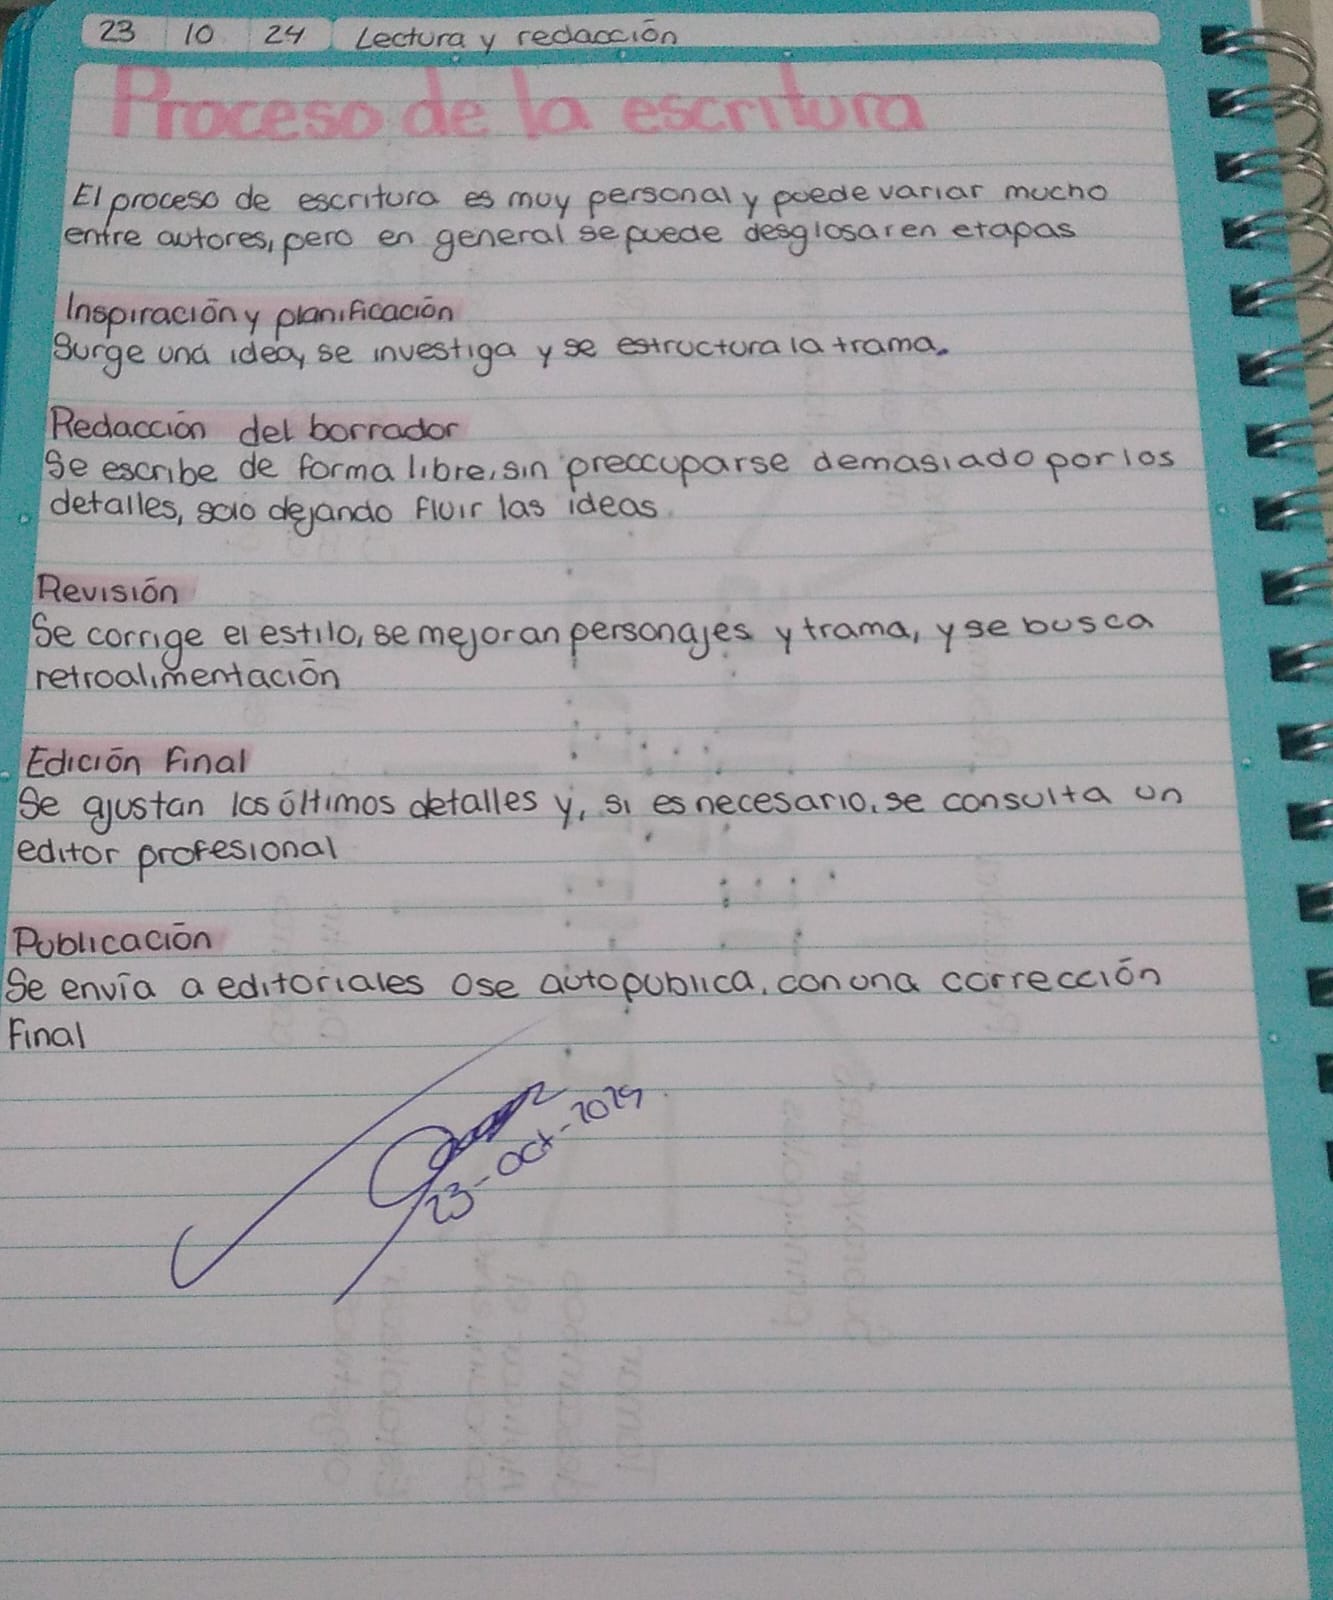 23 10 24 Lectura y redacción
Proceso de la escritura
El proceso de escritura es muy personal y puede variar mucho
entre autores, pero en general se puede desglosar en etapas
Inspiración y planificación
Surge una idea, se investiga y se estructura la trama.
Redacción del borrador
Se escribe de forma libre, sin preocuparse demasiado por los
detalles, solo dejando fluir las ideas.
Revisión
Se corrige el estilo, se mejoran personajes y trama, y se busca
retroalimentación
Edición Final
Se ajustan los últimos detalles y, si es necesario, se consulta un
editor profesional
Publicación
Se envía a editoriales o se autopublica, con una corrección
Final
23-oct-2024